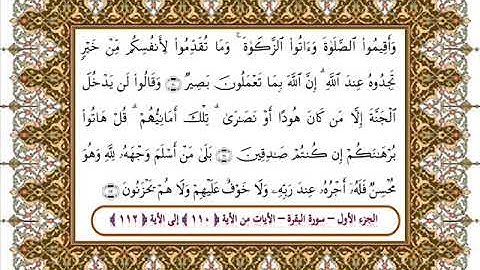 وَأَقِيمُوا۟ ٱلصَّلَوٰةَ وَءَاتُوا۟ ٱلزَّكَوٰةَ ۚ وَمَا تُقَدِّمُوا۟ لِأَنفُسِكُم مِّنْ خَيْرٍ
تَجِدُوهُ عِندَ ٱللَّهِ ۗ إِنَّ ٱللَّهَ بِمَا تَعْمَلُونَ بَصِيرٌ ﴿١١٠﴾ وَقَالُوا۟ لَن يَدْخُلَ
ٱلْجَنَّةَ إِلَّا مَن كَانَ هُودًا أَوْ نَصَـٰرَىٰ ۗ تِلْكَ أَمَانِيُّهُمْ ۗ قُلْ هَاتُوا۟
بُرْهَـٰنَكُمْ إِن كُنتُمْ صَـٰدِقِينَ ﴿١١١﴾ بَلَىٰ مَنْ أَسْلَمَ وَجْهَهُۥ لِلَّهِ وَهُوَ
مُحْسِنٌ فَلَهُۥٓ أَجْرُهُۥ عِندَ رَبِّهِۦ وَلَا خَوْفٌ عَلَيْهِمْ وَلَا هُمْ يَحْزَنُونَ ﴿١١٢﴾
الجزء الأول – سورة البقرة – الآيات من الآية ﴿ ١١٠ ﴾ إلى الآية ﴿ ١١٢ ﴾